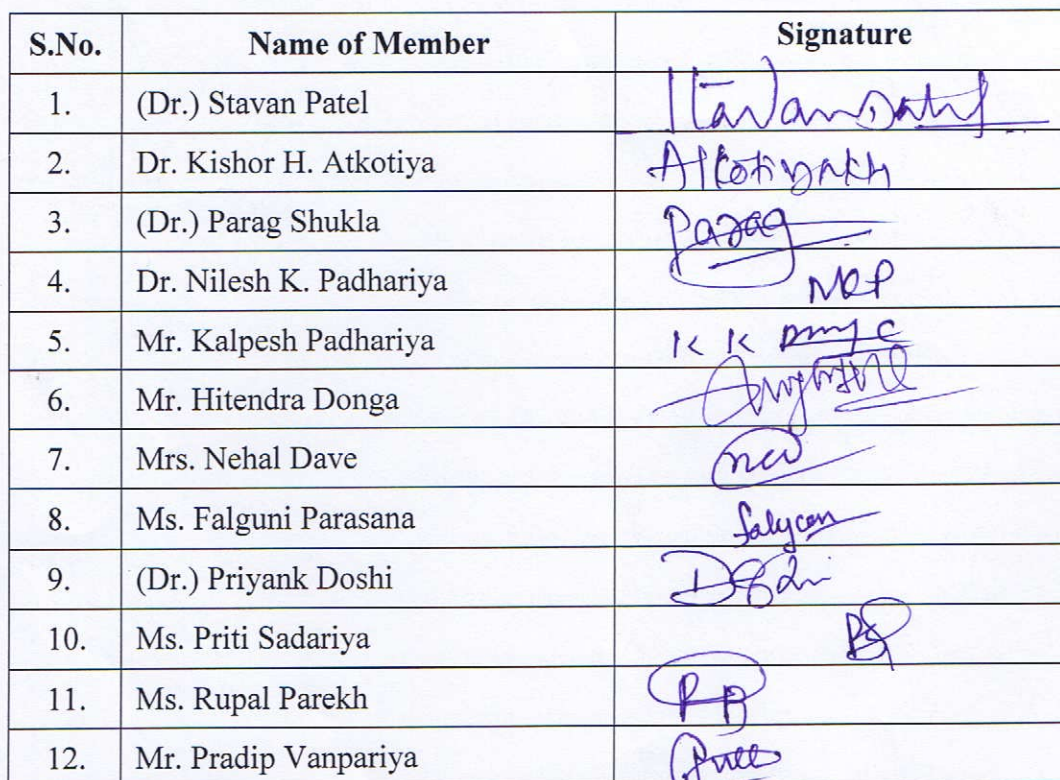 S.No. Name of Member Signature
1. (Dr.) Stavan Patel
2. Dr. Kishor H. Atkotiya
3. (Dr.) Parag Shukla Parag
4. Dr. Nilesh K. Padhariya
5. Mr. Kalpesh Padhariya K K
6. Mr. Hitendra Donga
7. Mrs. Nehal Dave
8. Ms. Falguni Parasana
9. (Dr.) Priyank Doshi
10. Ms. Priti Sadariya
11. Ms. Rupal Parekh
12. Mr. Pradip Vanpariya